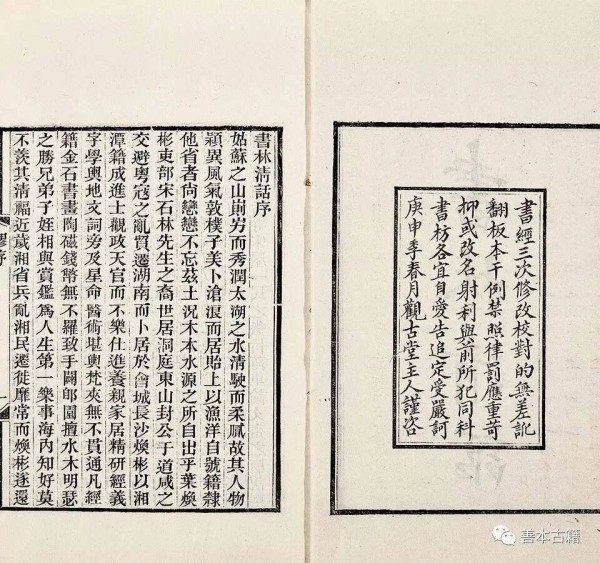 書經三次修改校對的無差訛
翻板本干例禁照律罰應重苛
抑或改名射利與前所犯同科
書枋各宜自愛告追定受嚴訶
庚申季春月觀古堂主人謹咨
書林清話序
姑蘇之山崱屴而秀潤太湖之水清駛而柔膩故其人物
穎異風氣敦樸子美卜滄浪而居貽上以漁洋自號籍隸
他省者尙戀戀不忘茲土況木本水源之所自出乎葉煥
彬吏部宋石林先生之裔世居洞庭東山封公于道咸之
交避粵寇之亂貿遷湖南而卜居於會城長沙煥彬以湘
潭籍成進士觀政天官而不樂仕進養親家居精研經義
字學輿地文詞旁及星命醫術堪輿梵夾無不貫通凡經
籍金石書畫陶磁錢幣無不羅致手闢郋園擅水木明瑟
之勝兄弟子姪相與賞鑑爲人生第一樂事海內知好莫
不羨其清福近歲湘省兵亂湘民遷徙靡常而煥彬遂還
繆序
一
善本古籍